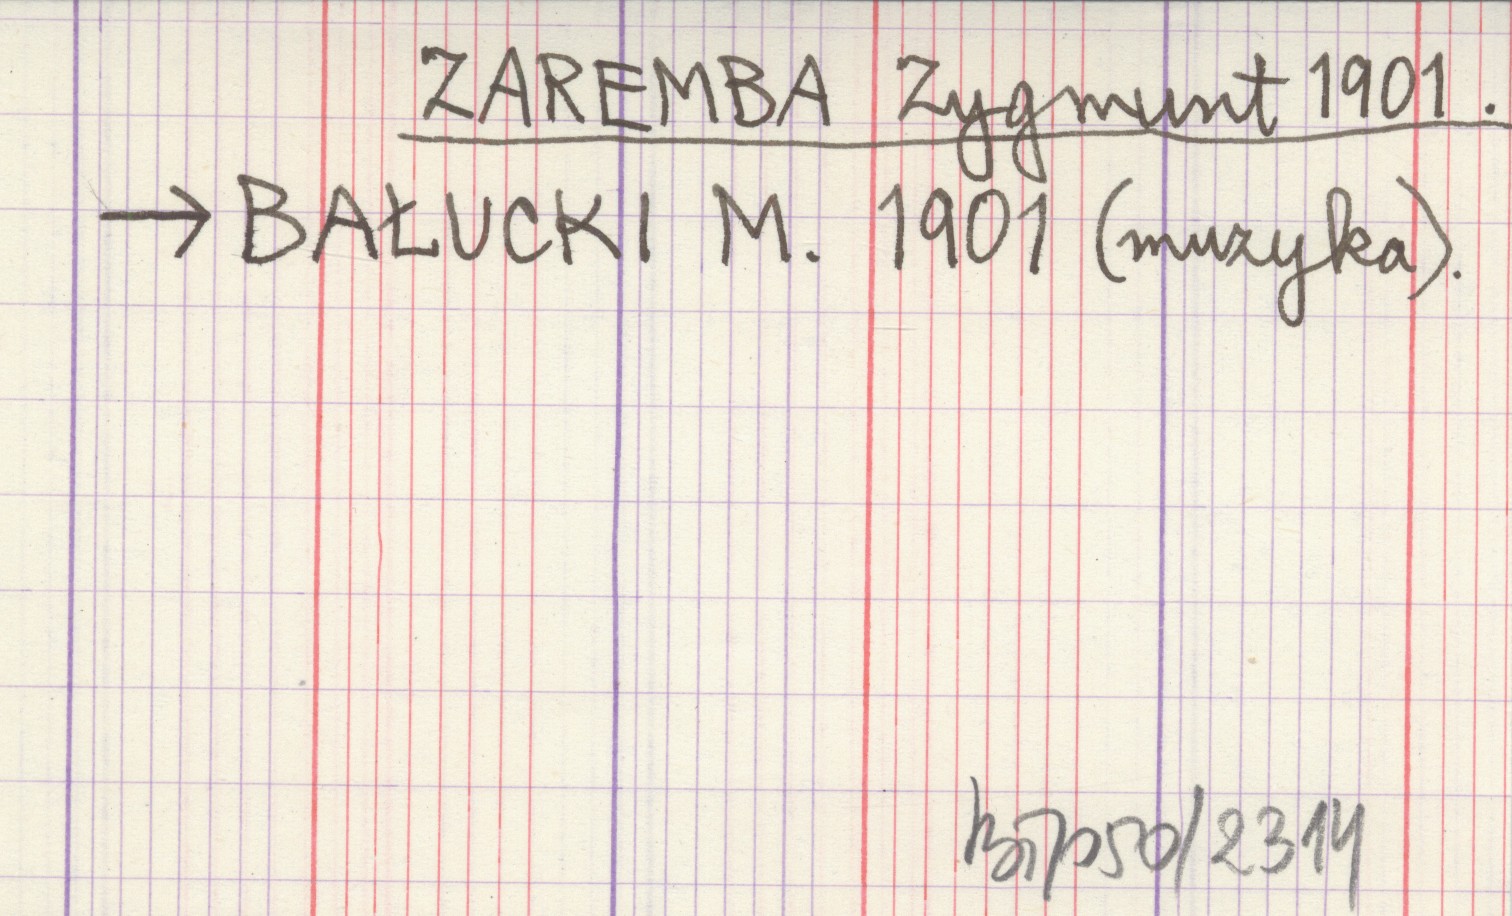 ZAREMBA Zygmunt 1901.
→ BAŁUCKI M. 1901 (muzyka).
50/2314